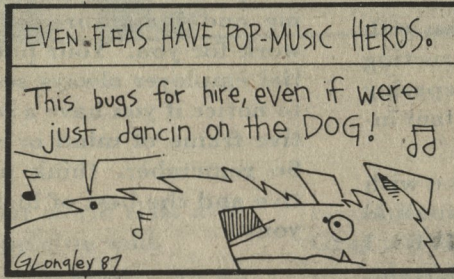 EVEN FLEAS HAVE POP-MUSIC HEROS.
This bugs for hire, even if were
just dancin on the DOG!
GLongley 87